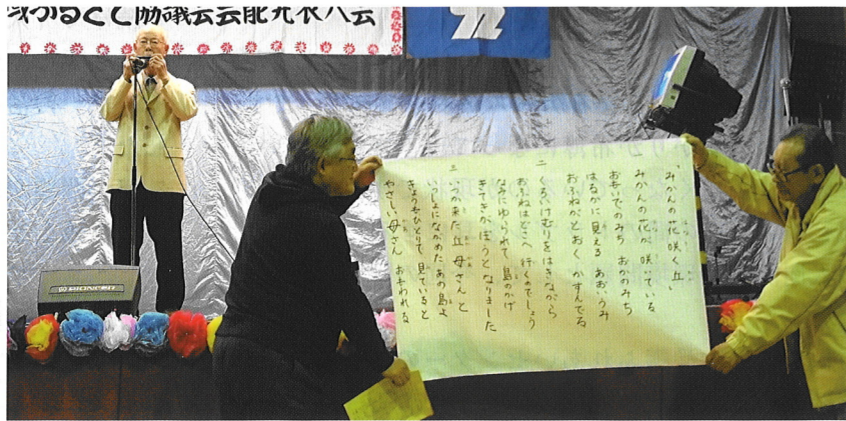 域ふるさと協議会芸能発表大会
「みかんの花咲く丘」
みかんの花が 咲いている
おもいでのみち おかのみち
はるかに見える あおいうみ
おふねがとおく かすんでる
二 くろいけむりをはきながら
おふねはどこへ 行くのでしょう
なみにゆられて 島のかげ
きてきがぼうとなりました
三 いつか来た 丘 母さんと
いっしょにながめた あの島よ
きょうもひとりで 見ていると
やさしい母さん おもわれる